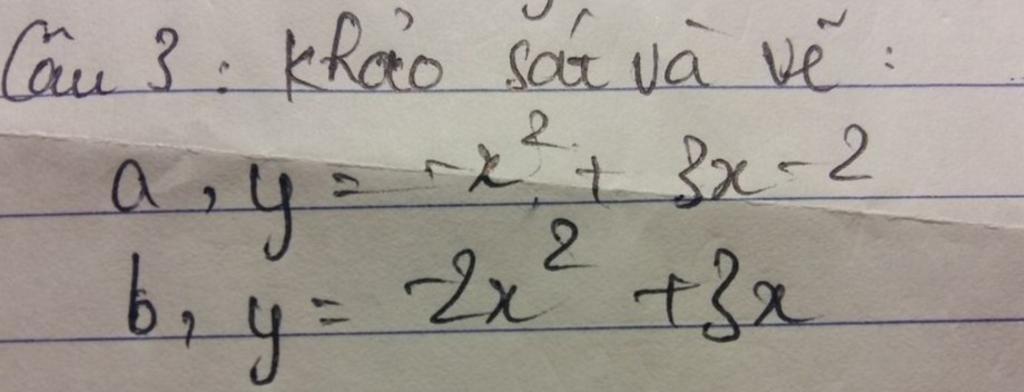 Câu 3: Khảo sát và vẽ:
a, y = -x² + 3x - 2
b, y = -2x² + 3x